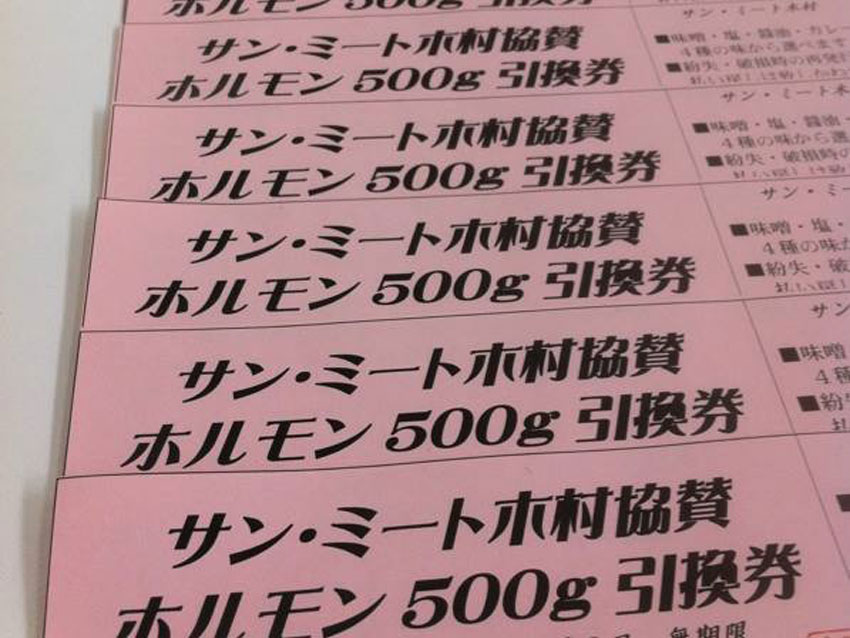 ホルモン 500g 引換券
サン・ミート木村協賛
ホルモン 500g 引換券
サン・ミート木村
■味噌・塩・醤油・カレー
4種の味から選べます
■紛失・破損時の再発行
サン・ミート木村協賛
ホルモン 500g 引換券
サン・ミート木
■味噌・塩・醤油・
4種の味から選
■紛失・破損時の
サン・ミート木村協賛
ホルモン 500g 引換券
サン・ミー
■味噌・塩・
4種の味か
■紛失・破
サン・ミート木村協賛
ホルモン 500g 引換券
サン
■味噌
4種
■紛
サン・ミート木村協賛
ホルモン 500g 引換券
無期限